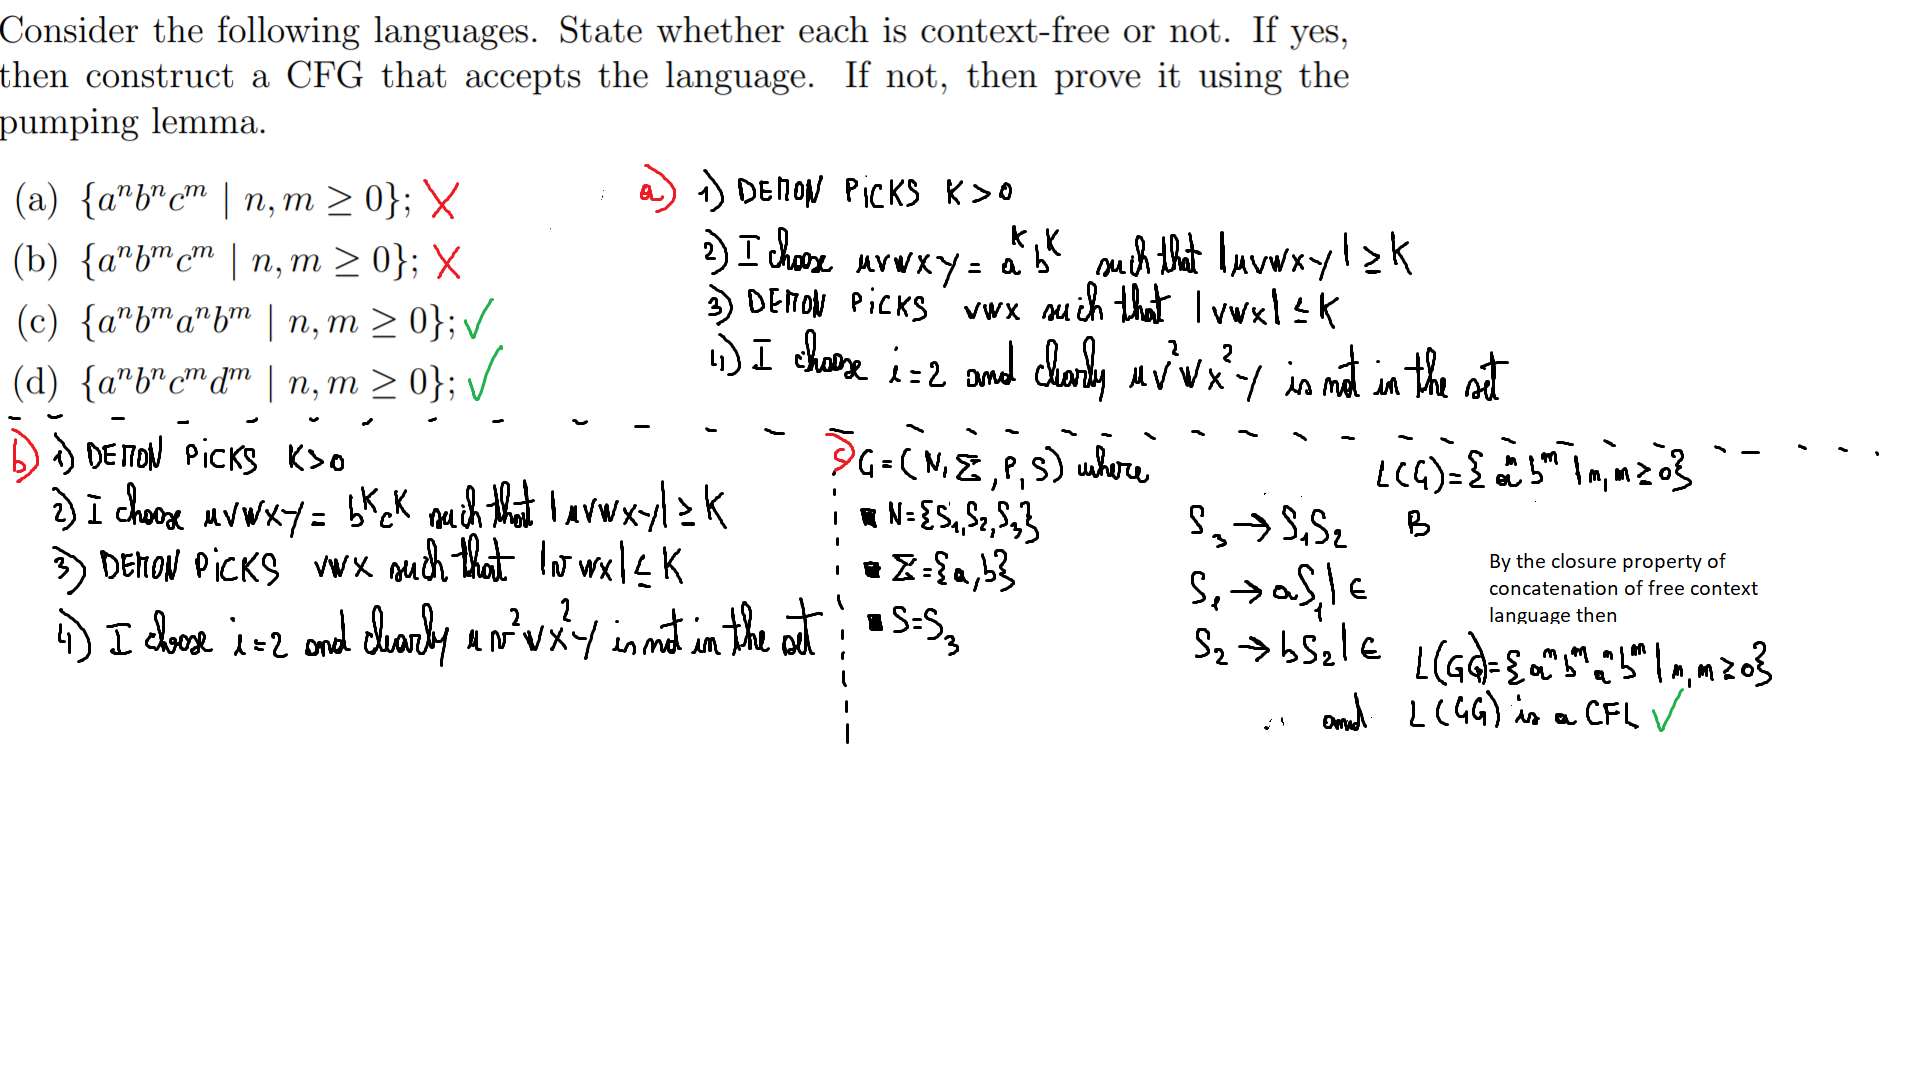 Consider the following languages. State whether each is context-free or not. If yes,
then construct a CFG that accepts the language. If not, then prove it using the
pumping lemma.
(a) {aⁿbⁿcᵐ | n, m ≥ 0}; X
(b) {aⁿbᵐcᵐ | n, m ≥ 0}; X
(c) {aⁿbᵐaⁿbᵐ | n, m ≥ 0}; ✓
(d) {aⁿbⁿcᵐdᵐ | n, m ≥ 0}; ✓
a) 1) DEMON PICKS K>0
2) I choose uvwxy = aᴷbᴷ such that |uvwxy| ≥ K
3) DEMON PICKS vwx such that |vwx| ≤ K
4) I choose i=2 and clearly uv²wx²y is not in the set
b) 1) DEMON PICKS K>0
2) I choose uvwxy = bᴷcᴷ such that |uvwxy| ≥ K
3) DEMON PICKS vwx such that |vwx| ≤ K
4) I choose i=2 and clearly uv²vx²y is not in the set
G=(N,Σ,P,S) where
▪ N={S₁,S₂,S₃}
▪ Σ={a,b}
▪ S=S₃
S₃→S₁S₂
S₁→aS₁|ϵ
S₂→bS₂|ϵ
L(G)={aⁿbᵐ|n,m≥0}
B
By the closure property of
concatenation of free context
language then
L(GG)={aⁿbᵐaⁿbᵐ|n,m≥0}
and L(GG) is a CFL ✓